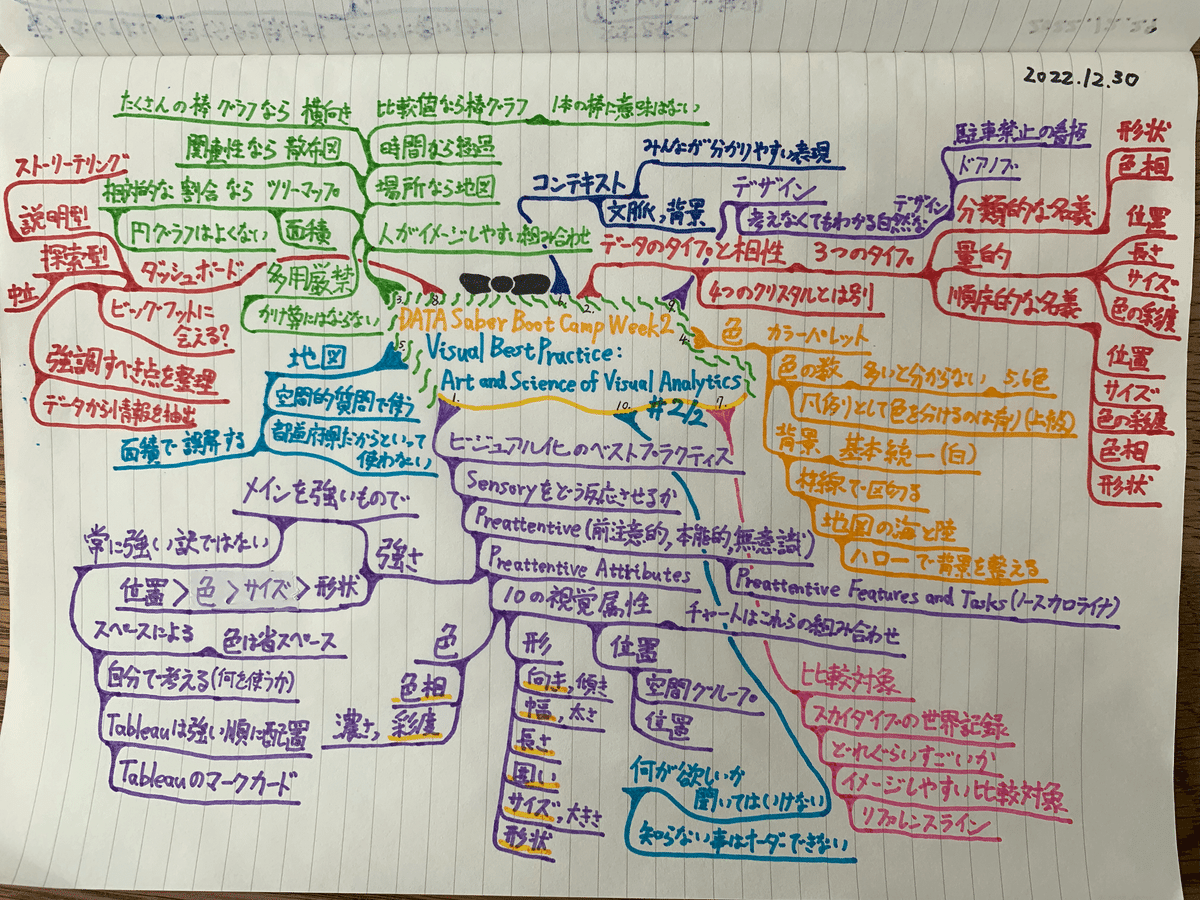 2022.12.30
DATA Saber Boot Camp Week2
Visual Best Practice:
Art and Science of Visual Analytics
#2/2
1.
ビジュアル化のベストプラクティス
Sensoryをどう反応させるか
Preattentive(前注意的,本能的,無意識)
Preattentive Attributes
Preattentive Features and Tasks(ノースカロライナ)
10の視覚属性
チャートはこれらの組み合わせ
位置
空間グループ
位置
形
向き,傾き
幅,太さ
長さ
囲い
サイズ,大きさ
形状
色
色相
濃さ,彩度
強さ
メインを強いもので
常に強い訳ではない
位置>色>サイズ>形状
スペースによる 色は省スペース
自分で考える(何を使うか)
Tableauは強い順に配置
Tableauのマークカード
2.
データのタイプと相性
3つのタイプ
分類的な名義
形状
色相
量的
位置
長さ
サイズ
色の彩度
順序的な名義
位置
サイズ
色の彩度
色相
形状
4つのクリスタルとは別
3.
比較値なら棒グラフ 1本の棒に意味はない
たくさんの棒グラフなら 横向き
時間なら経過
関連性なら 散布図
場所なら地図
相対的な割合なら ツリーマップ
面積
円グラフはよくない
人がイメージしやすい組み合わせ
多用厳禁
かけ算にはならない
4.
色 カラーパレット
色の数 多いと分からない 5,6色
凡例として色を分けるのは有り(上級)
背景 基本統一(白)
枠線で区切る
地図の海と陸
ハローで背景を整える
5.
地図
空間的質問で使う
都道府県だからといって
使わない
面積で誤解する
6.
コンテキスト
みんなが分かりやすい表現
文脈,背景
7.
比較対象
スカイダイブの世界記録
どれぐらいすごいか
イメージしやすい比較対象
リファレンスライン
8.
ダッシュボード
探索型
説明型
ストーリーテリング
ビッグ・フットに
会える?
強調すべき点を整理
データから情報を抽出
9.
デザイン
考えなくてもわかる自然な
デザイン
ドアノブ
駐車禁止の看板
10.
何が欲しいか
聞いてはいけない
知らない事はオーダーできない